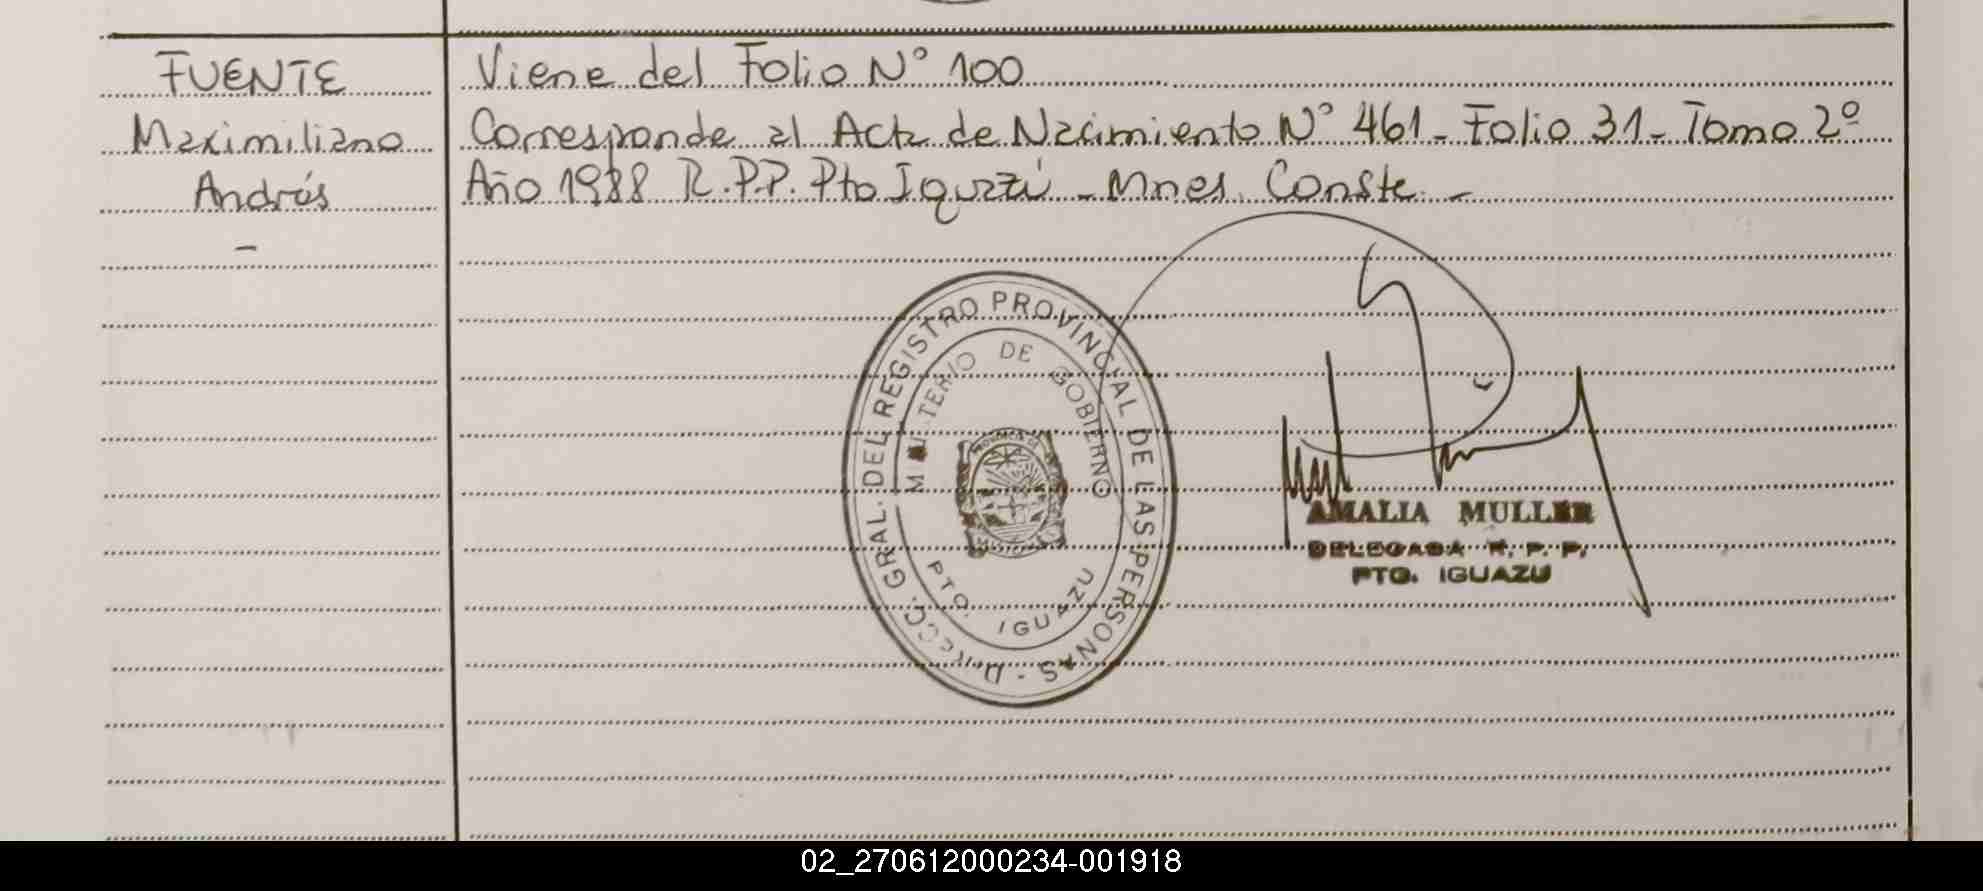 FUENTE
Maximiliano
Andrés
-
Viene del Folio N° 100
Corresponde al Acta de Nacimiento N° 461 - Folio 31 - Tomo 2º
Año 1988 R.P.P. Pto Iguazú - Mnes. Conste. -
DIRECC. GRAL. DEL REGISTRO PROVINCIAL DE LAS PERSONAS -
MINISTERIO DE GOBIERNO
PTO. IGUAZU
PROVINCIA DE
MISIONES
AMALIA MULLER
DELEGADA R. P. P.
PTO. IGUAZU
02_270612000234-001918